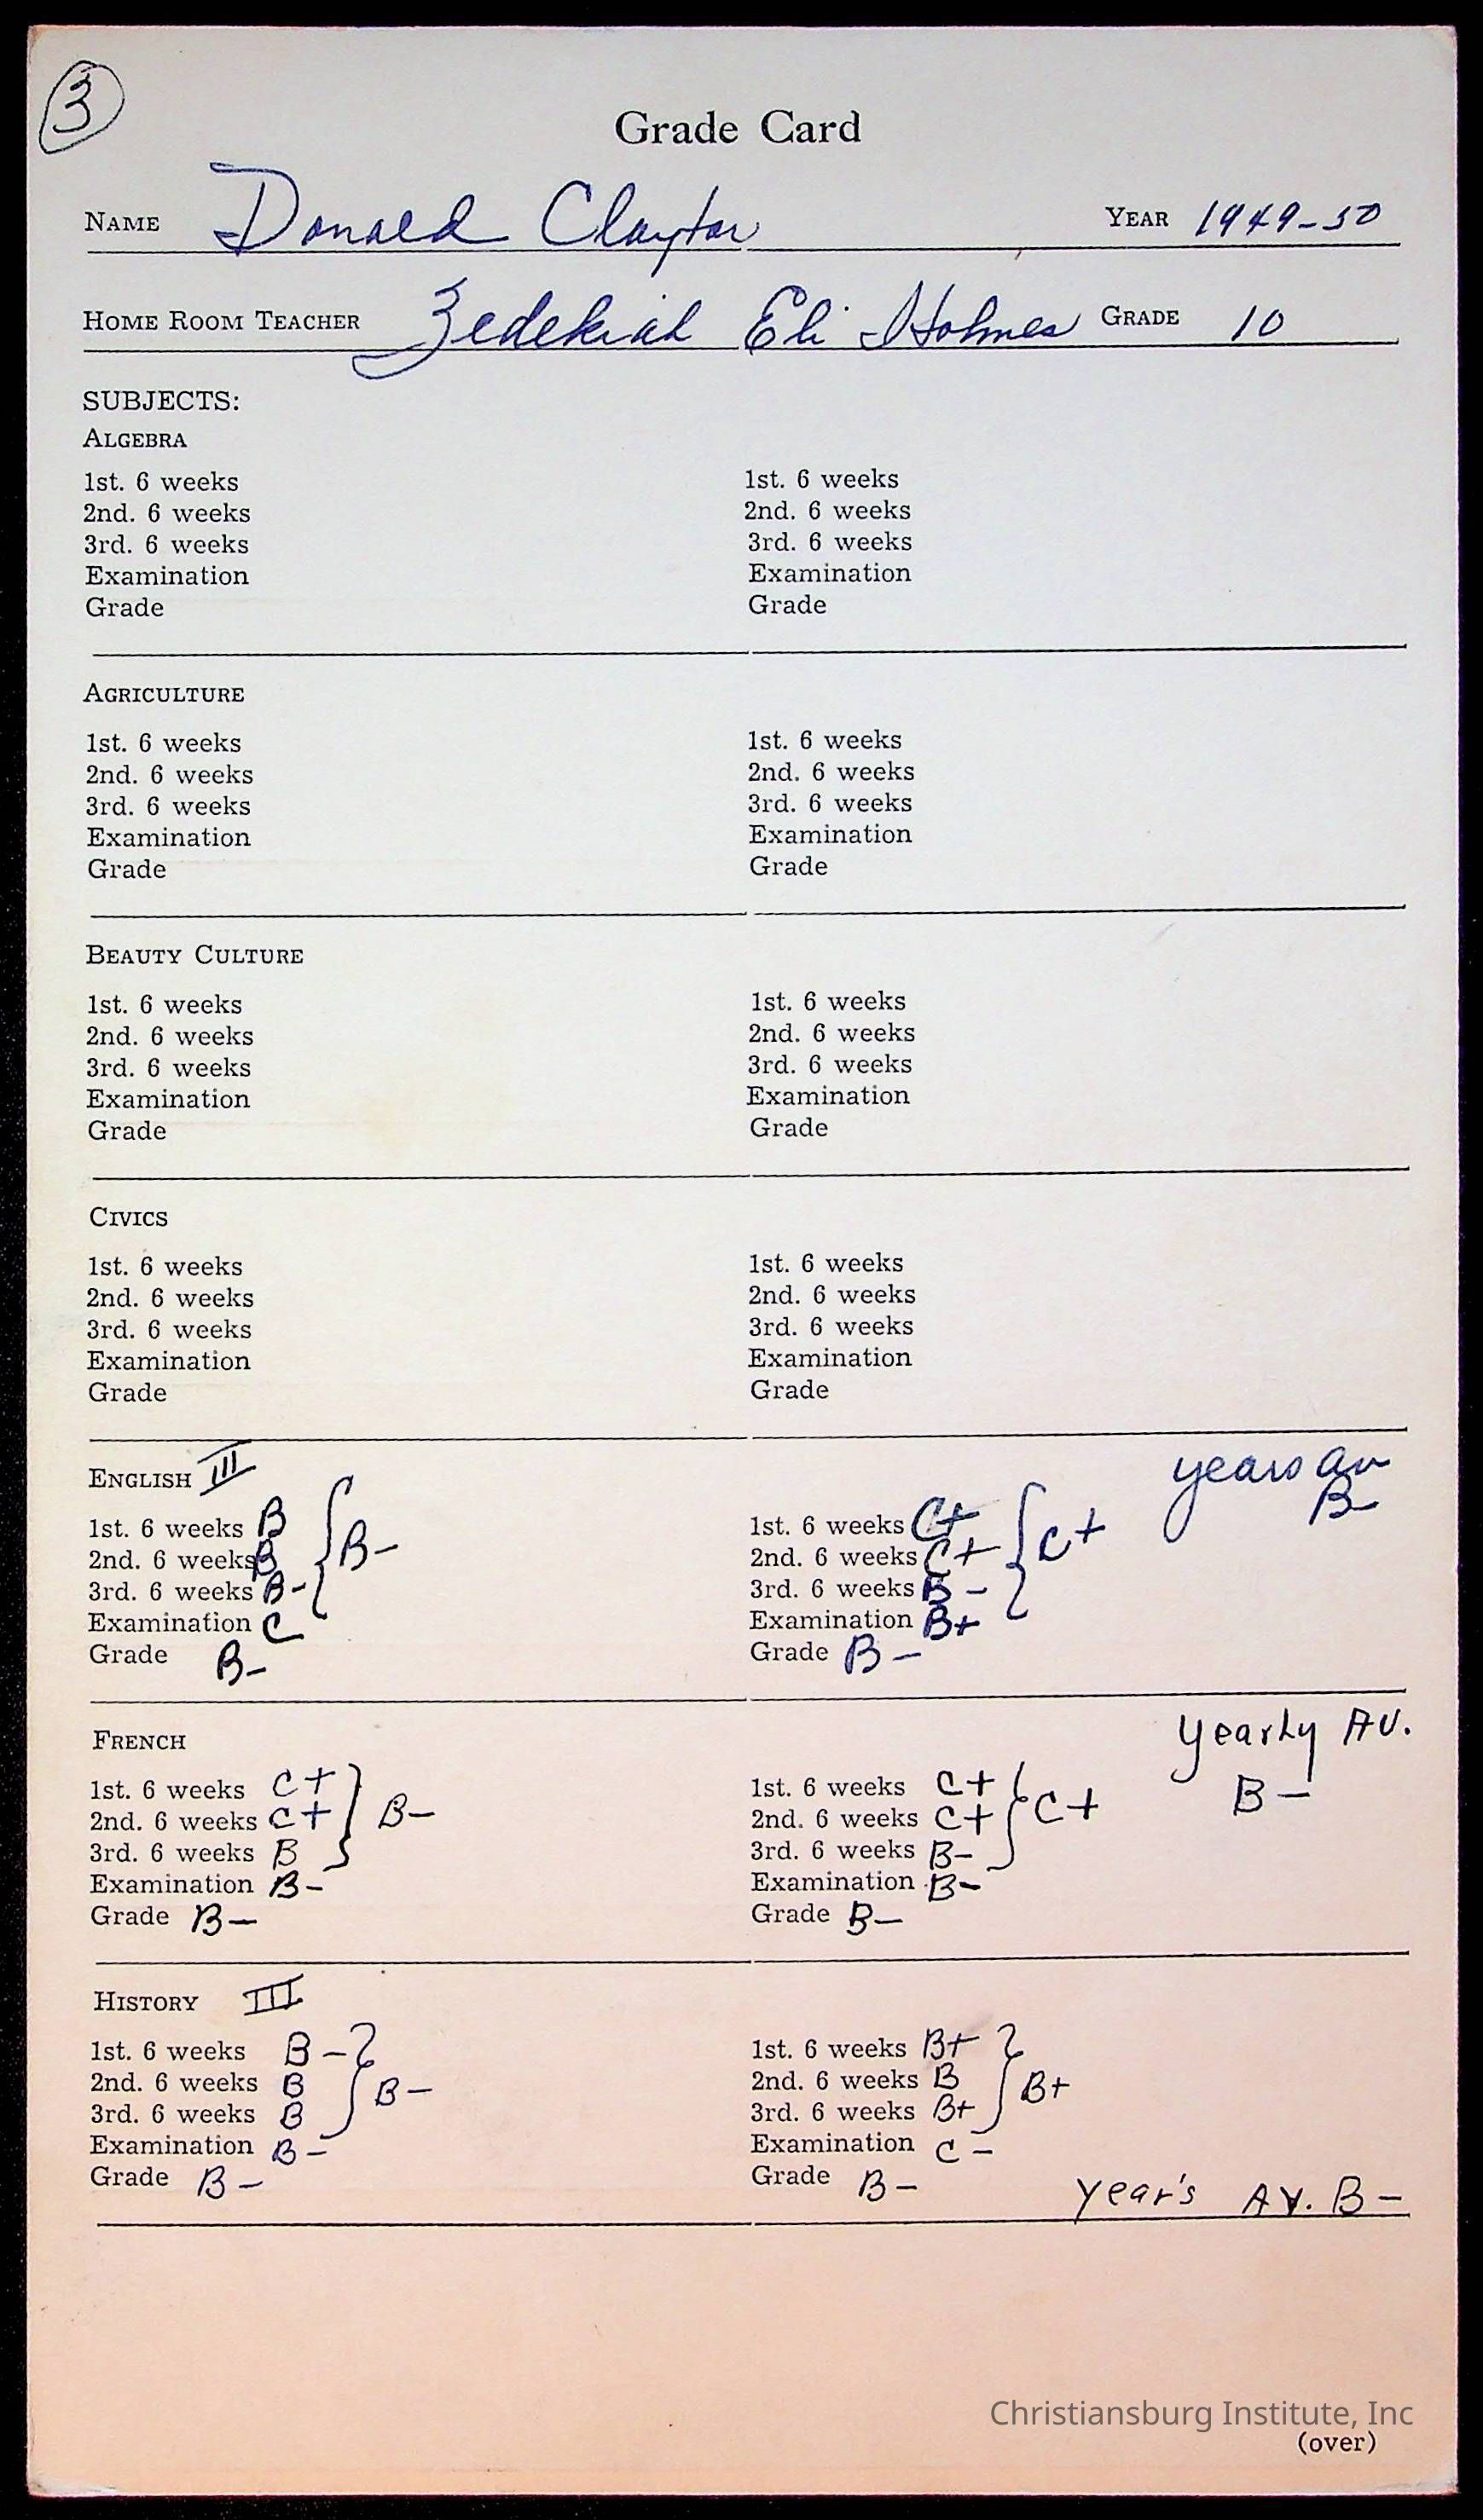 3
Grade Card
NAME Donald Clayton YEAR 1949-50
HOME ROOM TEACHER Zedekiah Eli Holmes GRADE 10
SUBJECTS:
ALGEBRA
1st. 6 weeks 1st. 6 weeks
2nd. 6 weeks 2nd. 6 weeks
3rd. 6 weeks 3rd. 6 weeks
Examination Examination
Grade Grade
AGRICULTURE
1st. 6 weeks 1st. 6 weeks
2nd. 6 weeks 2nd. 6 weeks
3rd. 6 weeks 3rd. 6 weeks
Examination Examination
Grade Grade
BEAUTY CULTURE
1st. 6 weeks 1st. 6 weeks
2nd. 6 weeks 2nd. 6 weeks
3rd. 6 weeks 3rd. 6 weeks
Examination Examination
Grade Grade
CIVICS
1st. 6 weeks 1st. 6 weeks
2nd. 6 weeks 2nd. 6 weeks
3rd. 6 weeks 3rd. 6 weeks
Examination Examination
Grade Grade
ENGLISH III years av
1st. 6 weeks B 1st. 6 weeks C+ B-
2nd. 6 weeks B } B- 2nd. 6 weeks C+ } C+
3rd. 6 weeks B- 3rd. 6 weeks B-
Examination C Examination B+
Grade B- Grade B-
FRENCH Yearly AV.
1st. 6 weeks C+ 1st. 6 weeks C+ B-
2nd. 6 weeks C+ } B- 2nd. 6 weeks C+ } C+
3rd. 6 weeks B 3rd. 6 weeks B-
Examination B- Examination B-
Grade B- Grade B-
HISTORY III
1st. 6 weeks B- 1st. 6 weeks B+
2nd. 6 weeks B } B- 2nd. 6 weeks B } B+
3rd. 6 weeks B 3rd. 6 weeks B+
Examination B- Examination C-
Grade B- Grade B- Year's AV. B-
Christiansburg Institute, Inc
(over)